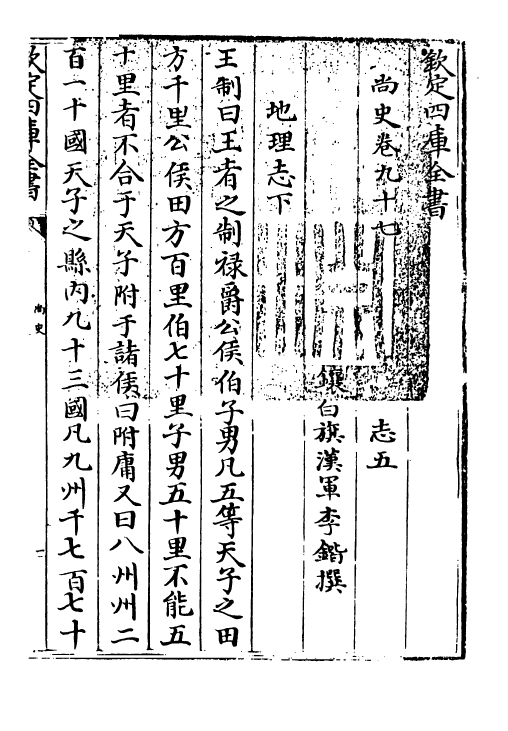 欽定四庫全書
尚史卷九十七
志五
鑲白旗漢軍李鍇撰
地理志下
王制曰王者之制禄爵公侯伯子男凡五等天子之田
方千里公侯田方百里伯七十里子男五十里不能五
十里者不合于天子附于諸侯曰附庸又曰八州州二
百一十國天子之縣内九十三國凡九州千七百七十
欽定四庫全書
尚史
一